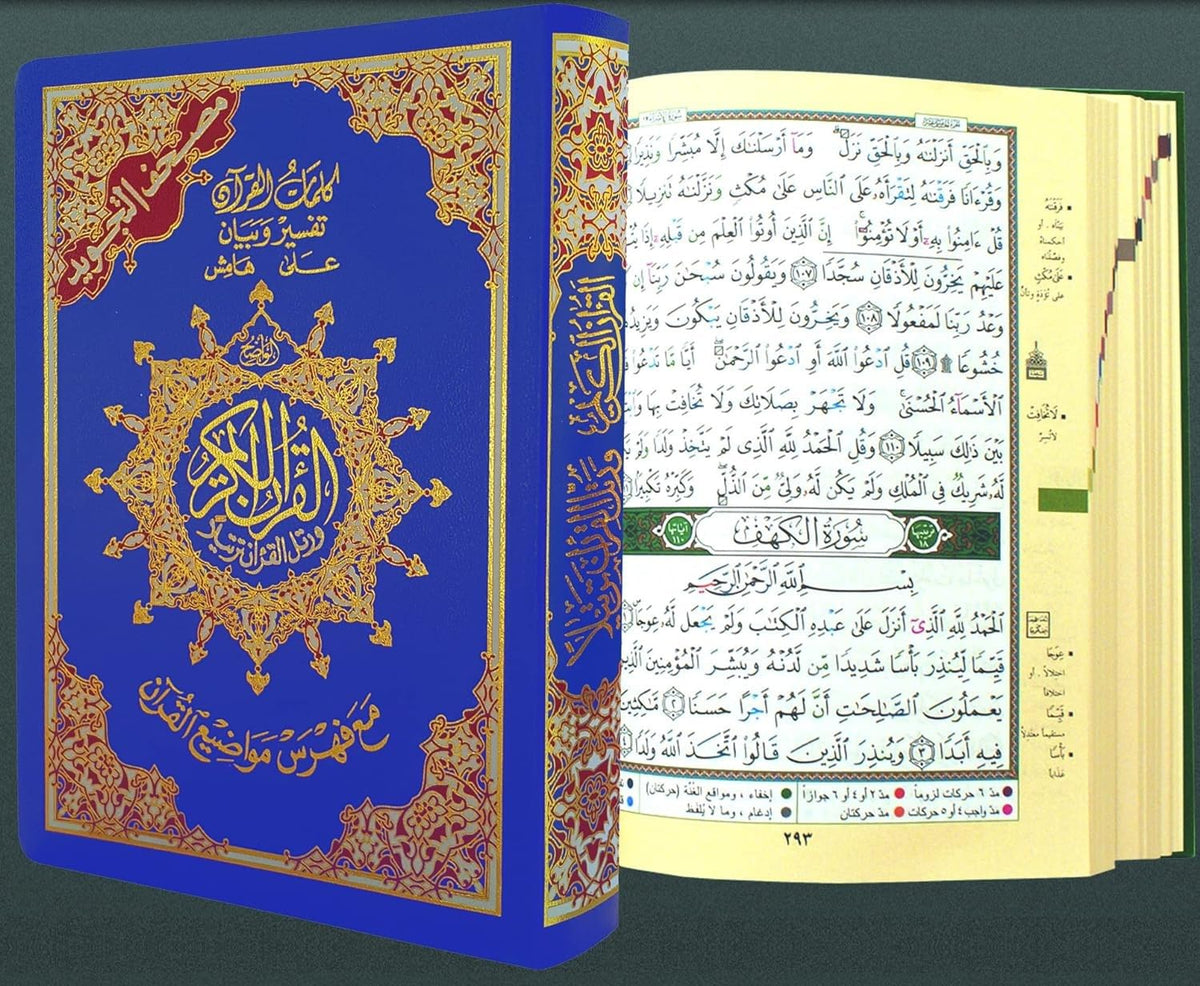 مصحف التجويد
كلمات القرآن
تفسير وبيان
على هامش
الواضح
القرآن الكريم
ورتل القرآن ترتيلا
مع فهرس مواضيع القرآن
القرآن الكريم ورتل القرآن ترتيلا
وَبِالْحَقِّ أَنزَلْنَـٰهُ وَبِالْحَقِّ نَزَلَ ۗ وَمَآ أَرْسَلْنَـٰكَ إِلَّا مُبَشِّرًا وَنَذِيرًا
وَقُرْءَانًا فَرَقْنَـٰهُ لِتَقْرَأَهُۥ عَلَى ٱلنَّاسِ عَلَىٰ مُكْثٍ وَنَزَّلْنَـٰهُ تَنزِيلًا
قُلْ ءَامِنُوا۟ بِهِۦٓ أَوْ لَا تُؤْمِنُوٓا۟ ۚ إِنَّ ٱلَّذِينَ أُوتُوا۟ ٱلْعِلْمَ مِن قَبْلِهِۦٓ إِذَا
عَلَيْهِمْ يَخِرُّونَ لِلْأَذْقَانِ سُجَّدًا ١٠٧ وَيَقُولُونَ سُبْحَـٰنَ رَبِّنَآ إِن
وَعْدُ رَبِّنَا لَمَفْعُولًا ١٠٨ وَيَخِرُّونَ لِلْأَذْقَانِ يَبْكُونَ وَيَزِيدُ
خُشُوعًا ۩ ١٠٩ قُلِ ٱدْعُوا۟ ٱللَّهَ أَوِ ٱدْعُوا۟ ٱلرَّحْمَـٰنَ ۖ أَيًّا مَّا تَدْعُوا۟
ٱلْأَسْمَآءُ ٱلْحُسْنَىٰ ۚ وَلَا تَجْهَرْ بِصَلَاتِكَ وَلَا تُخَافِتْ بِهَا
بَيْنَ ذَٰلِكَ سَبِيلًا ١١٠ وَقُلِ ٱلْحَمْدُ لِلَّهِ ٱلَّذِى لَمْ يَتَّخِذْ وَلَدًا وَلَمْ
لَّهُۥ شَرِيكٌ فِى ٱلْمُلْكِ وَلَمْ يَكُن لَّهُۥ وَلِىٌّ مِّنَ ٱلذُّلِّ ۖ وَكَبِّرْهُ تَكْبِيرًا
ترتيبها ١٨ سُورَةُ الكَهْفِ آياتها ١١٠
بِسْمِ ٱللَّهِ ٱلرَّحْمَـٰنِ ٱلرَّحِيمِ
ٱلْحَمْدُ لِلَّهِ ٱلَّذِىٓ أَنزَلَ عَلَىٰ عَبْدِهِ ٱلْكِتَـٰبَ وَلَمْ يَجْعَل لَّهُۥ عِوَجًا
قَيِّمًا لِّيُنذِرَ بَأْسًا شَدِيدًا مِّن لَّدُنْهُ وَيُبَشِّرَ ٱلْمُؤْمِنِينَ
يَعْمَلُونَ ٱلصَّـٰلِحَـٰتِ أَنَّ لَهُمْ أَجْرًا حَسَنًا ٢ مَّـٰكِثِينَ
فِيهِ أَبَدًا ٣ وَيُنذِرَ ٱلَّذِينَ قَالُوا۟ ٱتَّخَذَ ٱللَّهُ وَلَدًا
فَرَقْنَاهُ
بيّنّاه . أو
أحكمناه
وفصّلناه
عَلَىٰ مُكْثٍ
على تؤدة وتأنّ
لَا تُخَافِتْ
لا تسرّ
عِوَجًا
اختلالاً . أو
اختلافاً
قَيِّمًا
مستقيماً معتدلاً
بَأْسًا
عذاباً
مدّ ٦ حركات لزوماً مدّ ٢ أو ٤ أو ٦ جوازاً إخفاء ، ومواقع الغُنَّة (حركتان)
مدّ واجب ٤ أو ٥ حركات مدّ حركتان إدغام ، وما لا يُلفَظ
٢٩٣